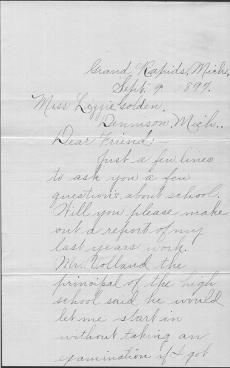 Grand Rapids, Mich.,
Sept. 9 1897.
Miss Lizzie Golden.
Dennison, Mich..
Dear Friend:-
Just a few lines
to ask you a few
questions about school.
Will you please make
out a report of my
last years work.
Mr. Volland the
principal of the high
school said he would
let me start in
without taking an
examination if I got